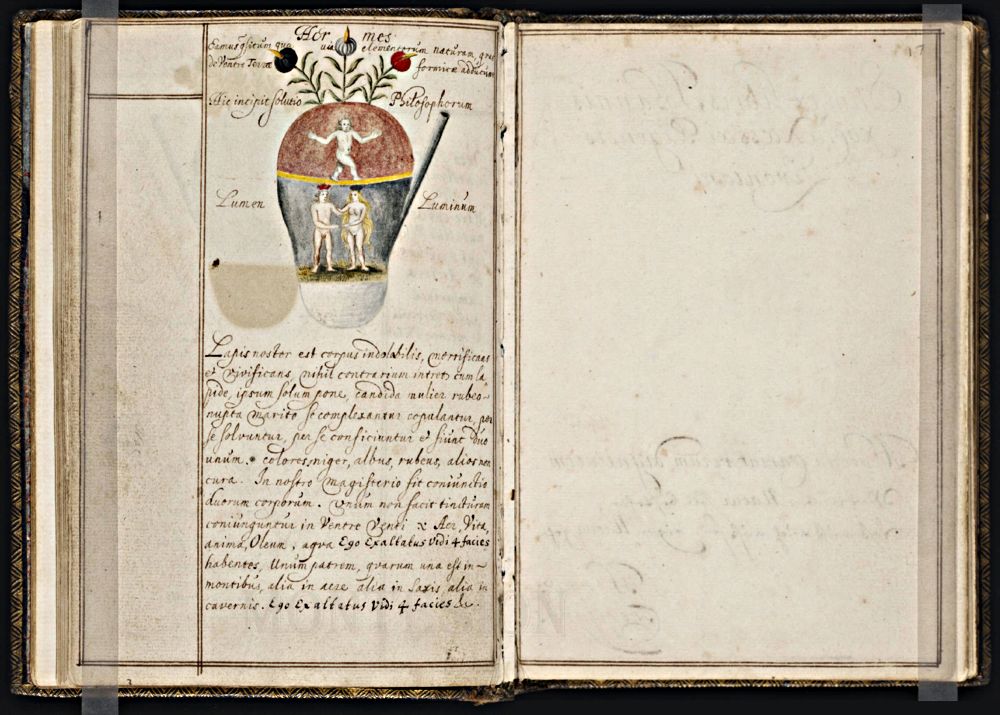 Hermes
Eamus qsitum qua via elementorum naturam qua
de Ventre Terræ formicæ adducun
Hic incipit solutio Philosophorum
Lumen Luminum
Lapis noster est corpus indolabilis, morrificans
et vivificans nihil contrarium intret cum la
pide, ipsum solum pone, candida mulier rubeo
nupta marito se complexantur copulantur, per
se solvuntur, per se conficiuntur et fiunt duo
unum. colores, niger, albus, rubeus, alios non
cura. In nostro magisterio fit coniunctio
duorum corporum. Unum non facit tincturam
coniunguntur in Ventre Venti x Aer, Vita,
anima, Oleum, aqua Ego Exaltatus Vidi 4 facies
habentes, Unum patrem, quarum una est in
montibus, alia in aere alia in Saxis, alia in
cavernis. Ego Exaltatus Vidi 4 facies &c.